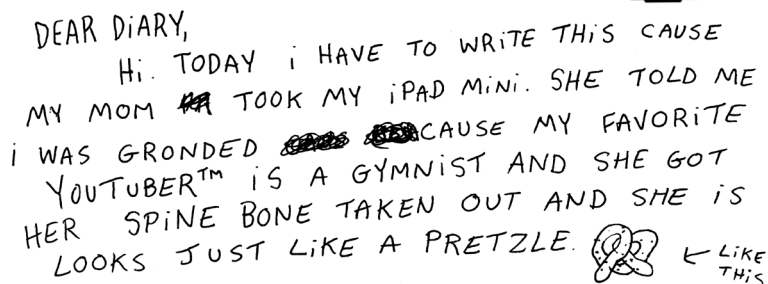 DEAR DiARY,
Hi. TODAY i HAVE TO WRiTE THiS CAUSE
MY MOM TOOK MY iPAD MiNi. SHE TOLD ME
i WAS GRONDED CAUSE MY FAVORiTE
YOUTUBER™ iS A GYMNiST AND SHE GOT
HER SPiNE BONE TAKEN OUT AND SHE iS
LOOKS JUST LiKE A PRETZLE. ← LiKE
THiS